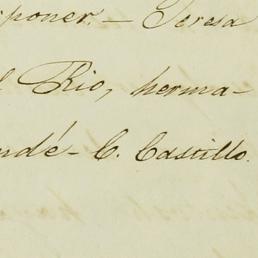 sponer. — Teresa
l Rio, herma-
ndé - C. Castillo.